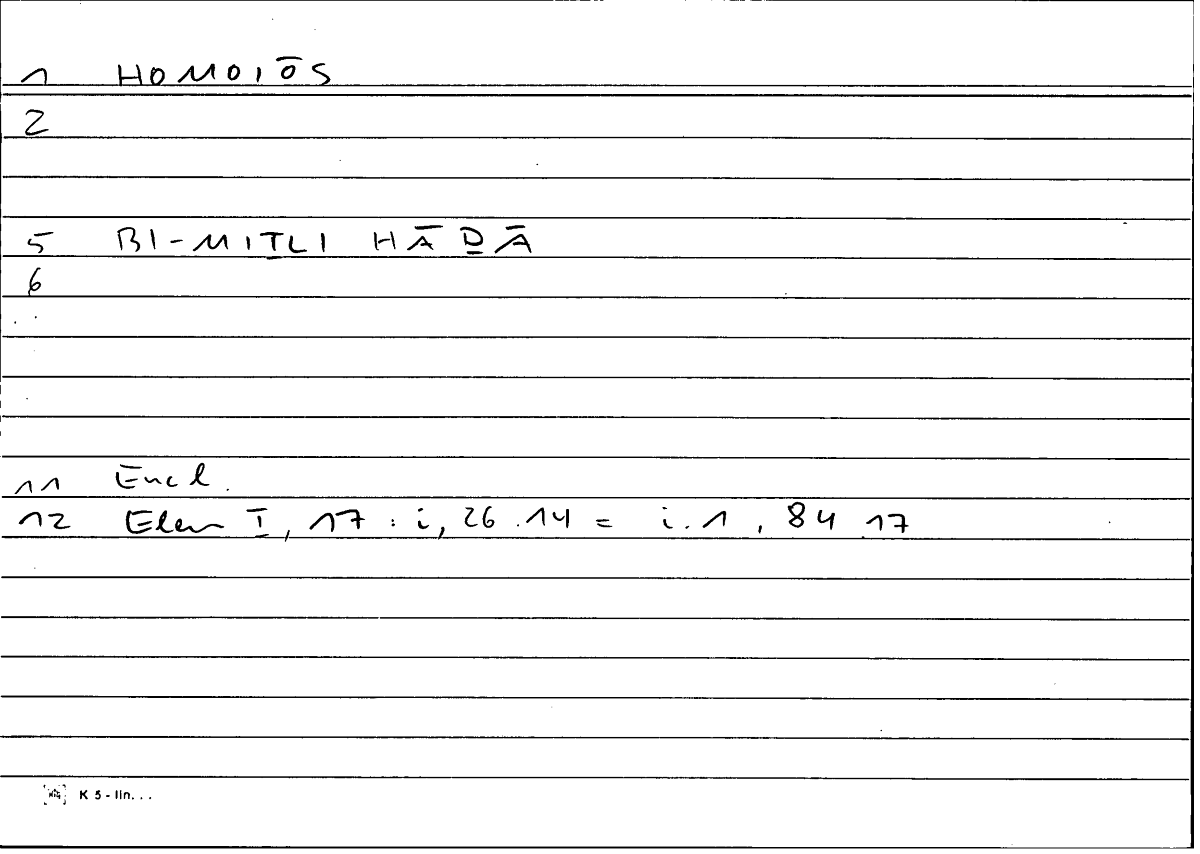 1 HOMOIŌS
2
5 BI-MIṮLI HĀḎĀ
6
11 Eucl.
12 Elem I, 17 : i, 26.14 = i.1, 84 17
K 5 - lin...